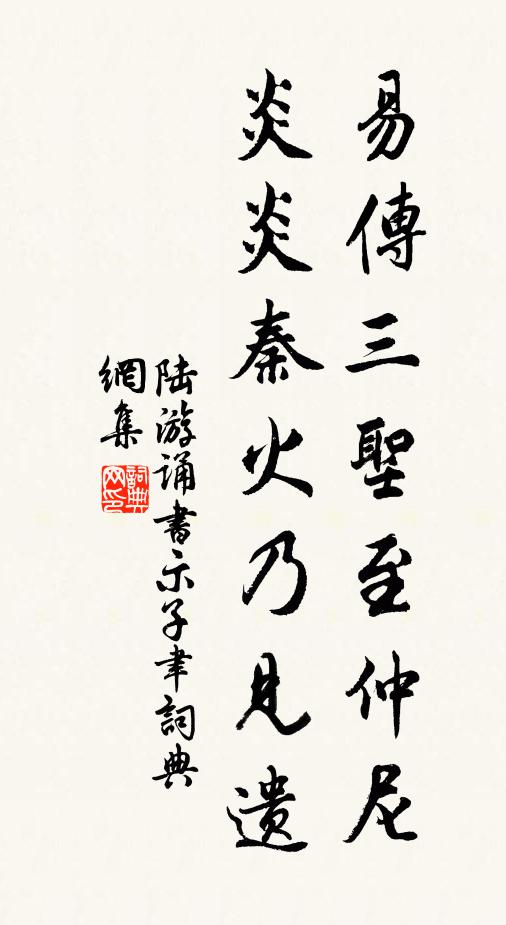 易傳三聖至仲尼
炎炎秦火乃見遺
陆游诵書示子聿詞典
網集
詞典網印